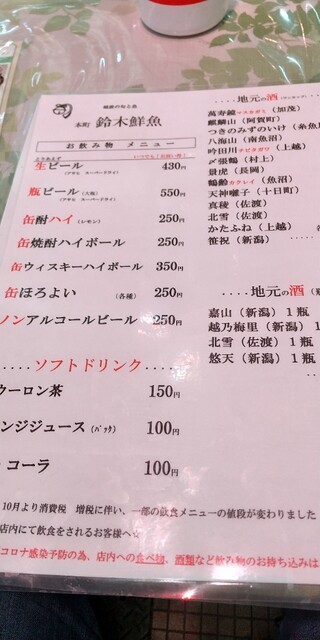 越後の旬と魚
本町 鈴木鮮魚
お飲み物 メニュー
とりあえず
生ビール 430円
(アサヒ スーパードライ)
瓶ビール (大瓶) 550円
(アサヒ スーパードライ)
缶酎ハイ (レモン) 250円
缶焼酎ハイボール 250円
缶ウィスキーハイボール 350円
缶ほろよい (各種) 250円
ノンアルコールビール 250円
.....ソフトドリンク.....
ウーロン茶 150円
ンジジュース (パック) 100円
コーラ 100円
10月より消費税 増税に伴い、一部の飲食メニューの値段が変わりました
店内にて飲食をされるお客様へ☆
コロナ感染予防の為、店内への食べ物、酒類など飲み物のお持ち込みは
....地元の酒
萬寿鏡マスカガミ (加茂)
麒麟山 (阿賀町)
つきのみずのいけ (糸魚
八海山 (南魚沼)
吟田川チビタガワ (上越)
〆張鶴 (村上)
景虎 (長岡)
鶴齢カクレイ (魚沼)
天神囃子 (十日町)
真稜 (佐渡)
北雪 (佐渡)
かたふね (上越)
笹祝 (新潟)
....地元の酒
嘉山 (新潟) 1瓶
越乃梅里 (新潟) 1瓶
北雪 (佐渡) 1瓶
悠天 (新潟) 1瓶